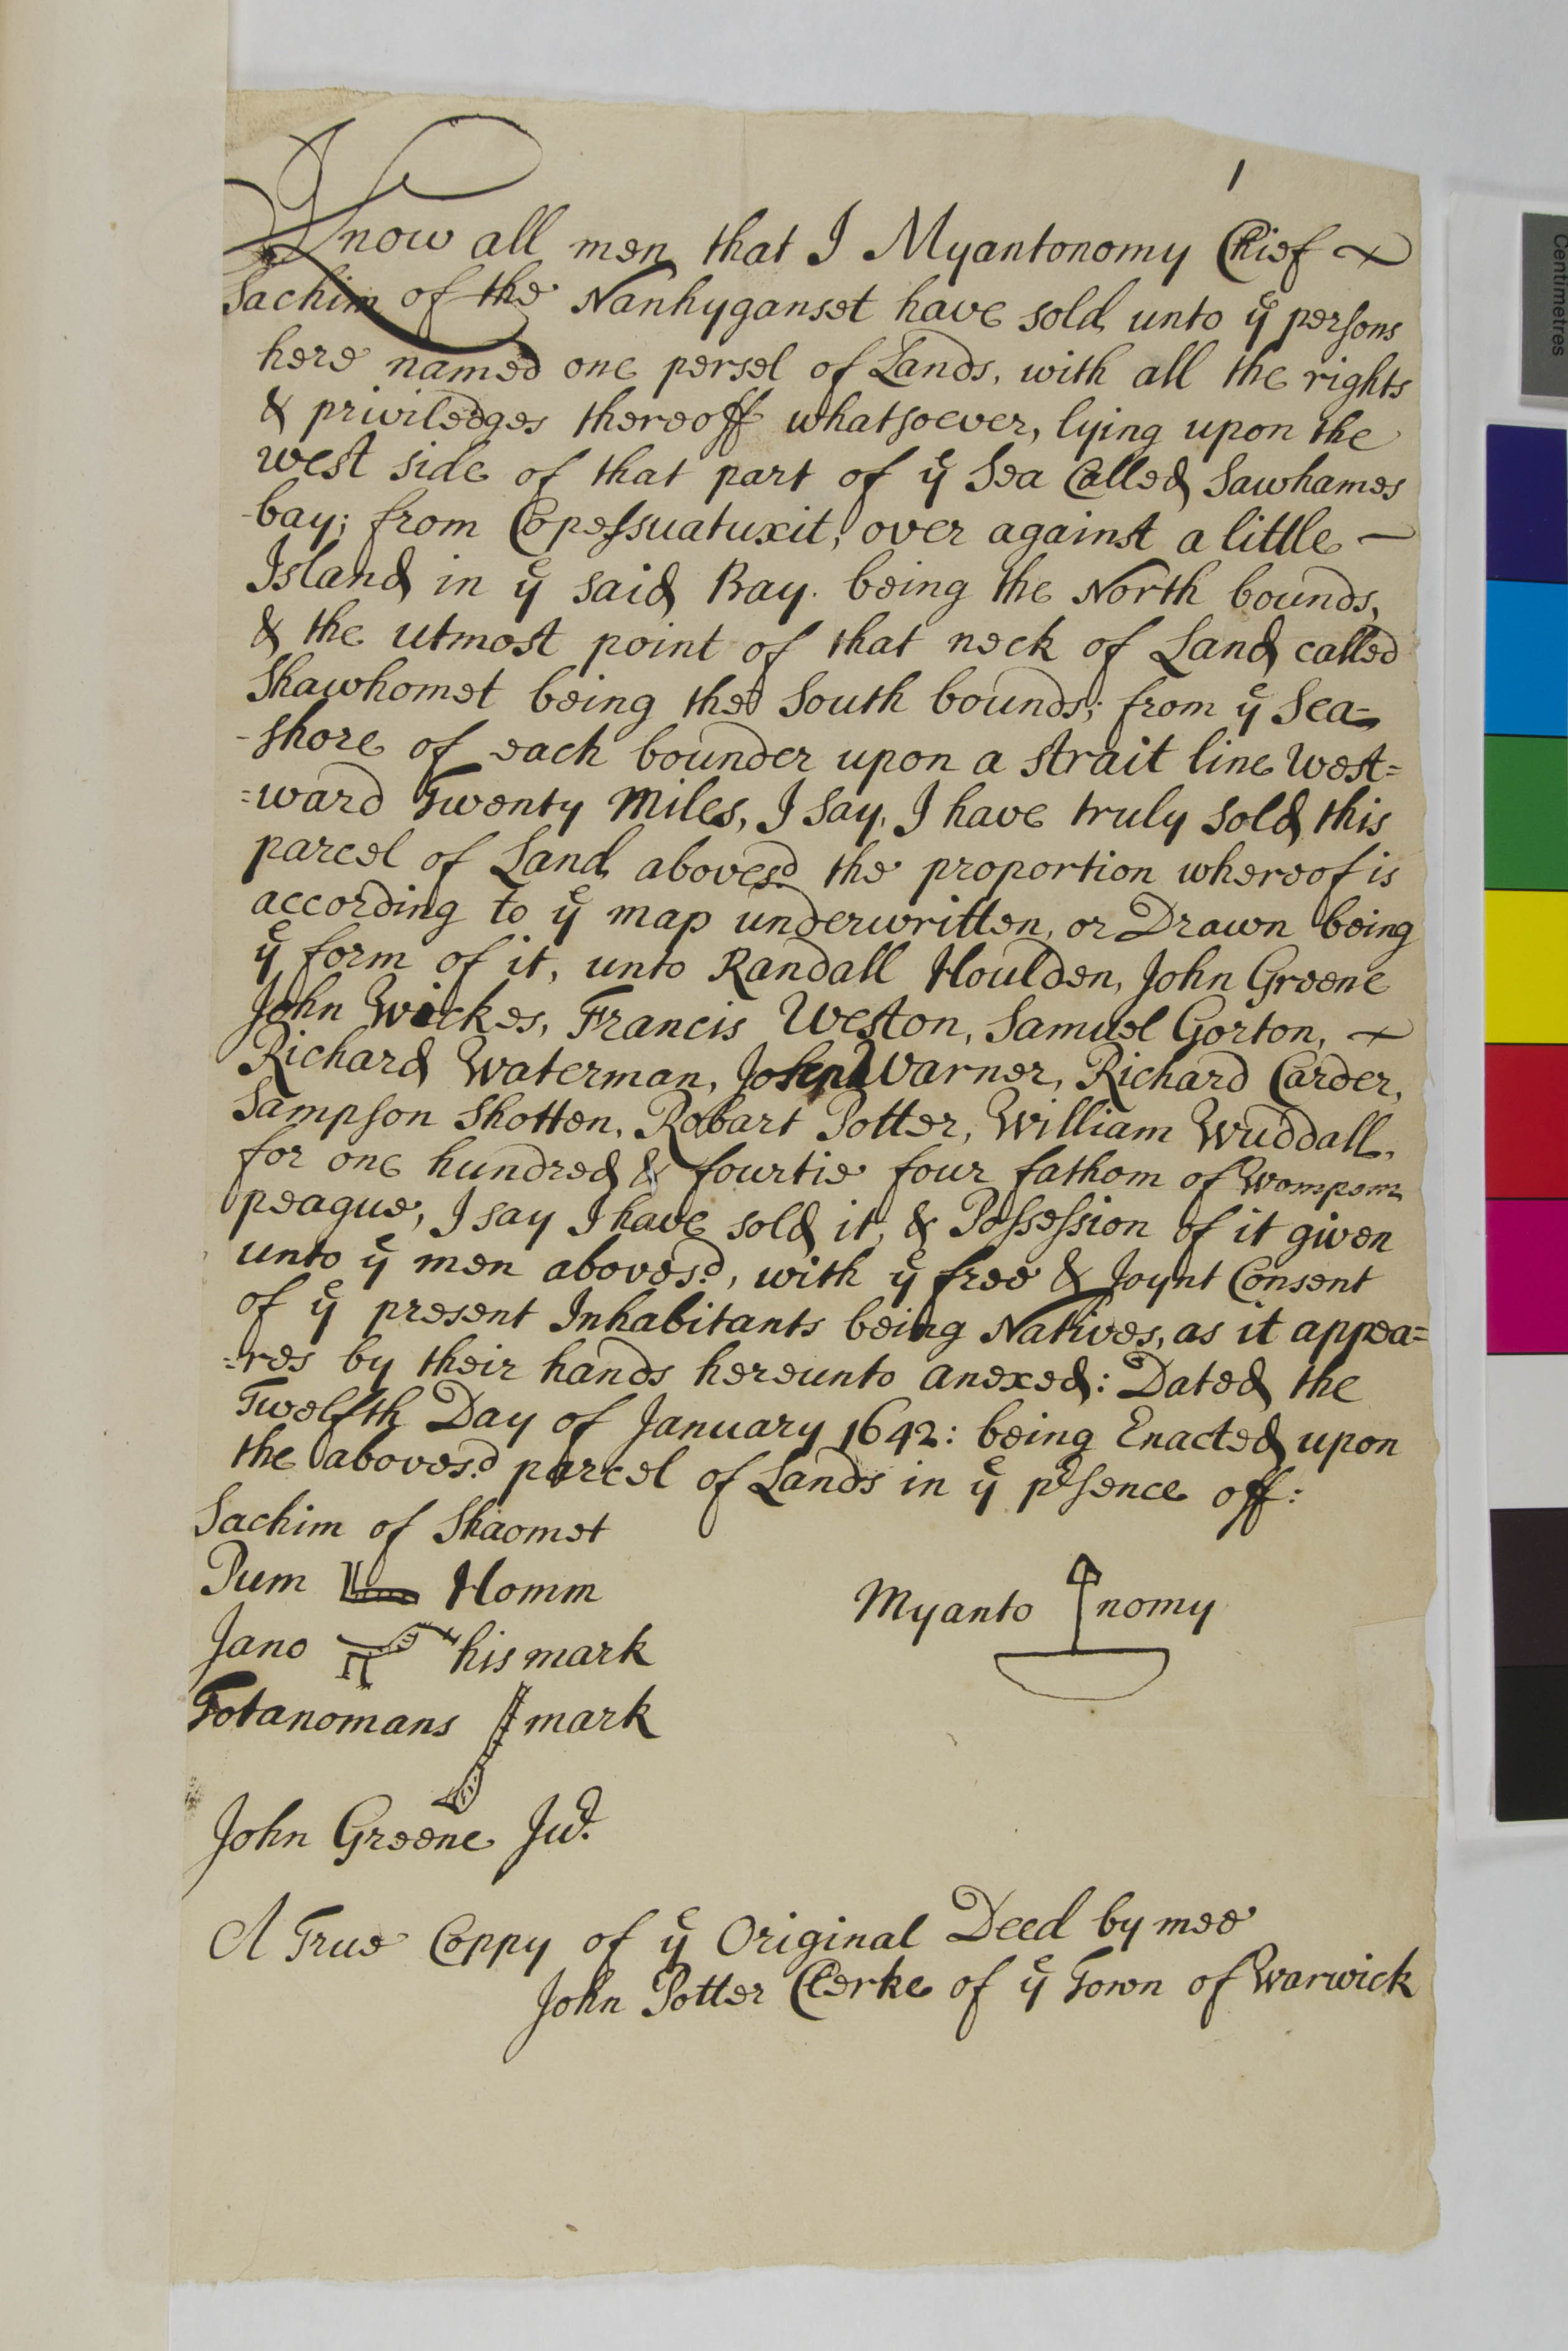 1
Know all men that I Myantonomy Chief
Sachim of the Nanhyganset have sold unto yᵉ persons
here named one persel of Lands, with all the rights
& priviledges thereoff whatsoever, lying upon the
west side of that part of yᵉ Sea Called Sawhames
bay; from Copessuatuxit, over against a little
Island in yᵉ said Bay. being the North bounds,
& the utmost point of that neck of Land called
Shawhomet being the South bounds; from yᵉ Sea=
-shore of each bounder upon a strait line West=
=ward Twenty Miles, I say, I have truly sold this
parcel of Land abovesd the proportion whereof is
according to yᵉ map underwritten, or Drawn being
yᵉ form of it, unto Randall Houlden, John Greene
John Wickes, Francis Weston, Samuel Gorton,
Richard Waterman, John Warner, Richard Carder,
Sampson Shotten, Robart Potter, William Wuddall,
for one hundred & fourtie four fathom of Wompom
peague, I say I have sold it, & Possession of it given
unto yᵉ men abovesd, with yᵉ free & Joynt Consent
of yᵉ present Inhabitants being Natives, as it appea=
=res by their hands hereunto anexed: Dated the
Twelfth Day of January 1642: being Enacted upon
the abovesd parcel of Lands in yᵉ psence off:
Sachim of Shaomet
Pum Homm
Jano his mark
Totanomans mark
Myanto nomy
John Greene Junr
A True Coppy of yᵉ Original Deed by mee
John Potter Clerke of yᵉ Town of Warwick
Centimetres